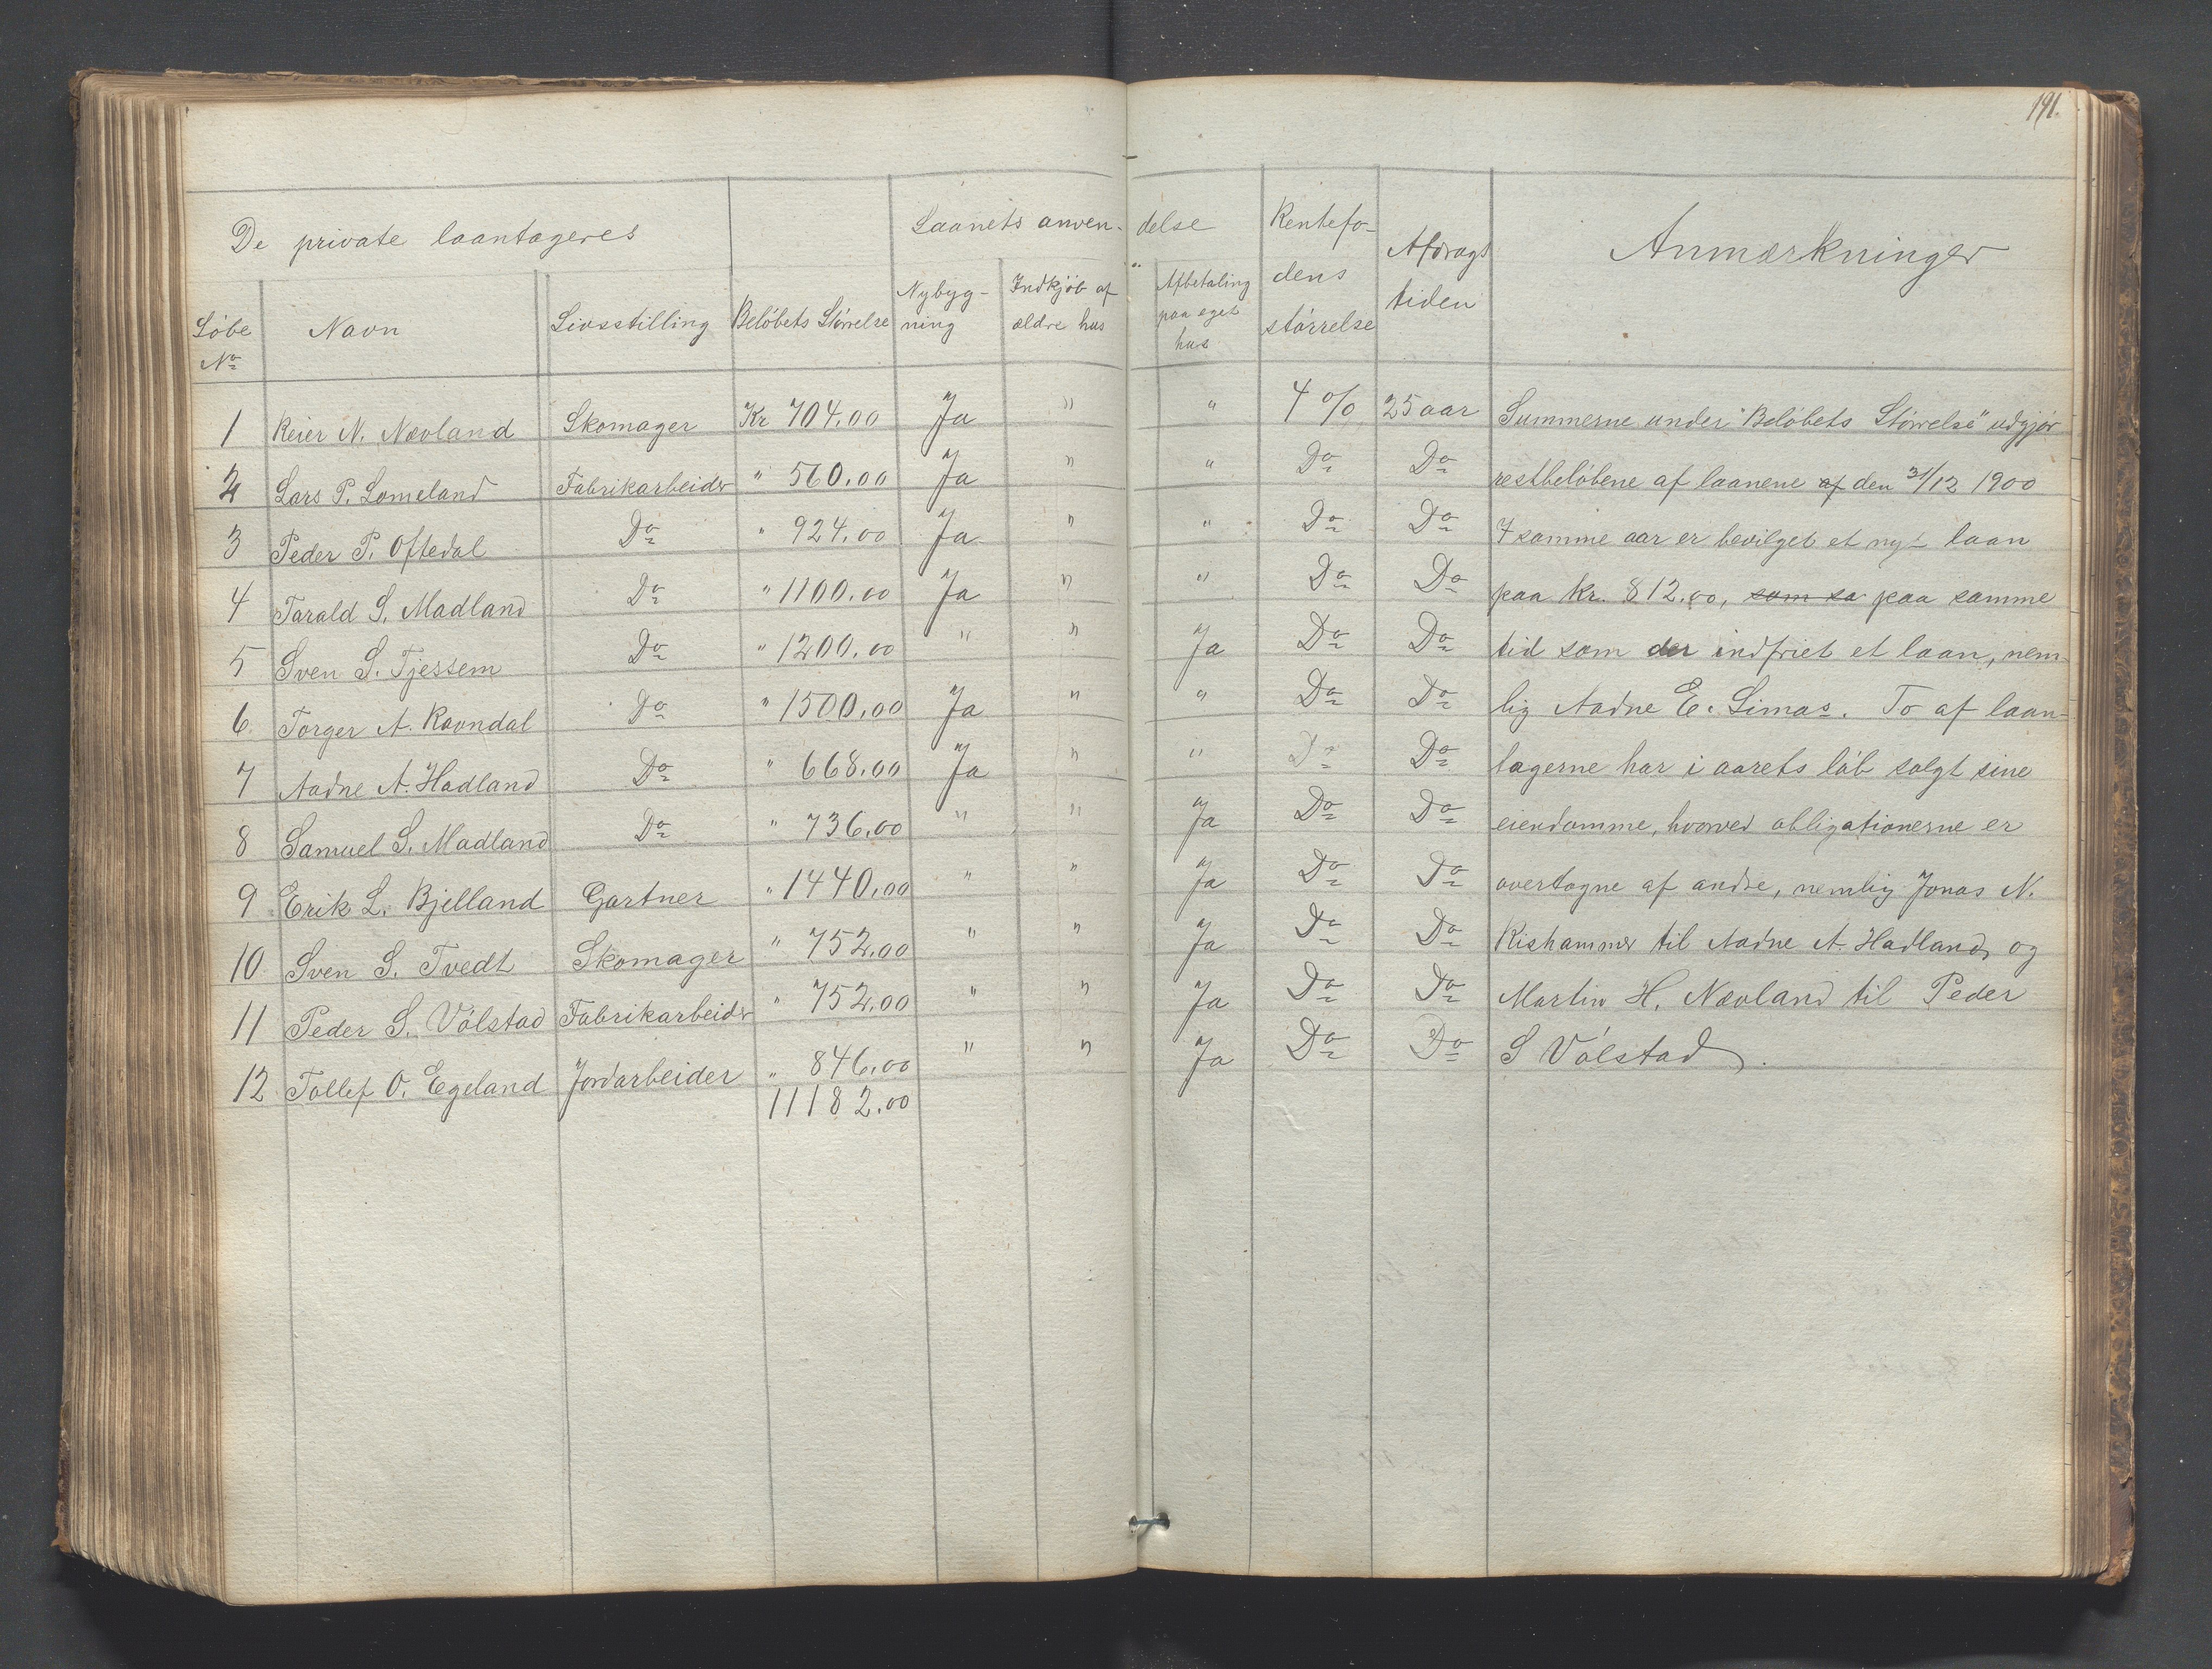 191.
De private laantageres
Laanets anven-delse
Rentefo-dens størrelse
Afdrags tiden
Anmærkninger
Løbe No
Navn
Livsstilling
Beløbets Størrelse
Nybyg-ning
Indkjøb af ældre hus
Afbetaling paa eget hus
1 Reier N. Nævland Skomager Kr 704.00 Ja " " 4 % 25 aar
2 Lars P. Lomeland Fabrikarbeider " 560.00 Ja " " Do Do
3 Peder P. Oftedal Do " 924.00 Ja " " Do Do
4 Tarald S. Madland Do " 1100.00 Ja " " Do Do
5 Sven S. Tjessem Do " 1200.00 " " Ja Do Do
6 Torger A. Ravndal Do " 1500.00 Ja " " Do Do
7 Aadne A. Hadland Do " 668.00 Ja " " Do Do
8 Samuel S. Madland Do " 736.00 " " Ja Do Do
9 Erik L. Bjelland Gartner " 1440.00 " " Ja Do Do
10 Sven S. Tvedt Skomager " 752.00 " " Ja Do Do
11 Peder S. Vølstad Fabrikarbeider " 752.00 " " Ja Do Do
12 Tollef O. Egeland Jordarbeider " 846.00 " " Ja Do Do
11182.00
Summerne under "Beløbets Størrelse" udgjør
restbeløbene af laanene af den 31/12 1900
I samme aar er bevilget et nyt laan
paa kr. 812.00, som sa paa samme
tid som der indfriet et laan, nem-
lig Aadne E. Limas. To af laan-
tagerne har i aarets løb solgt sine
eiendomme, hvorved obligationerne er
overtagne af andre, nemlig Jonas N.
Rishammer til Aadne A. Hadland, og
Martin H. Nævland til Peder
S Vølstad.